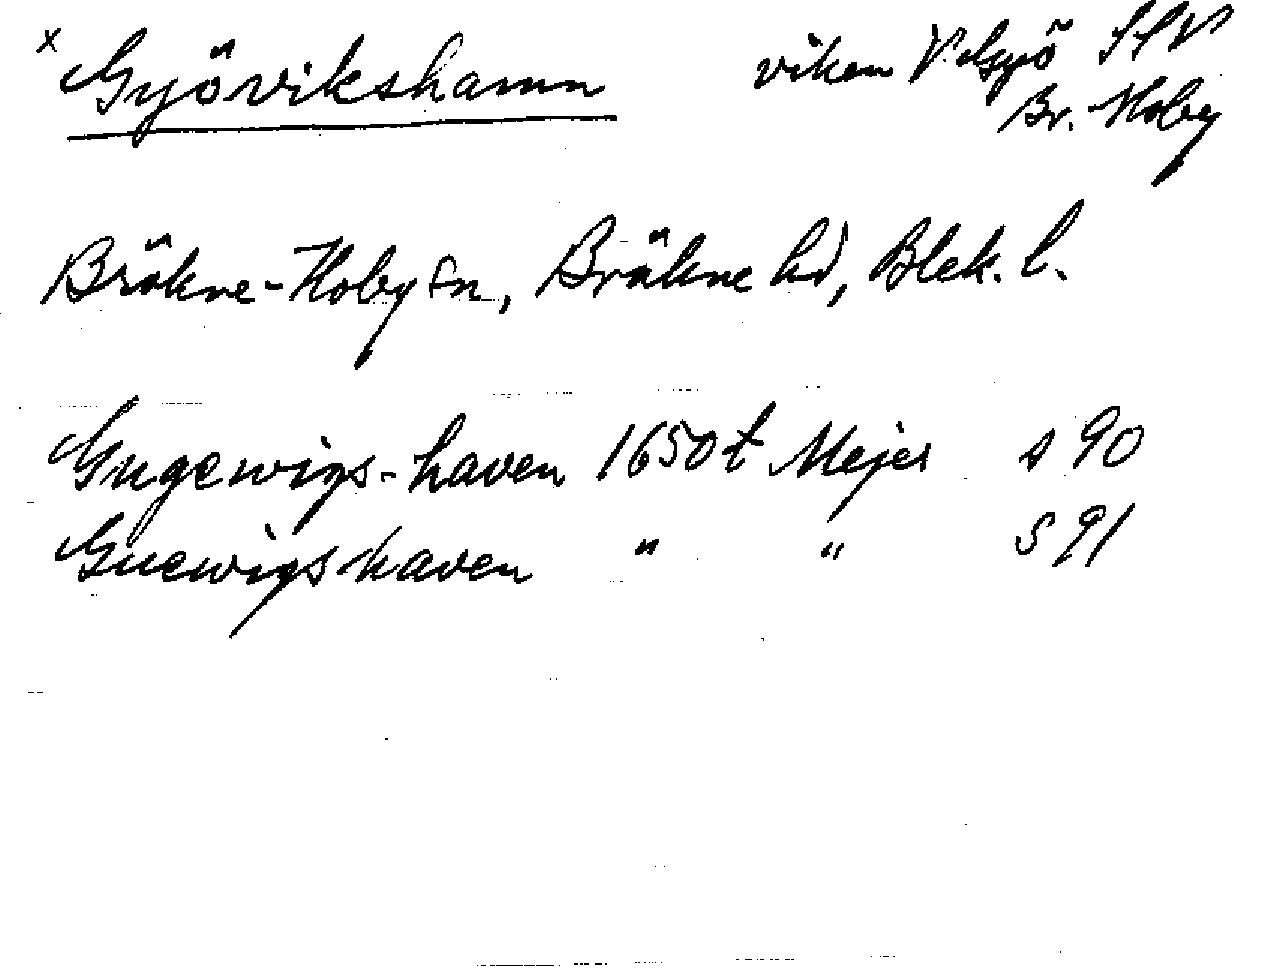 x Gyövikshamn viken V Gyö SSV
Br.-Hoby
Bräkne-Hoby sn, Bräkne hd, Blek. l.
Gugewigs-haven 1650 t Mejer s 90
Guewigshaven " " s 91